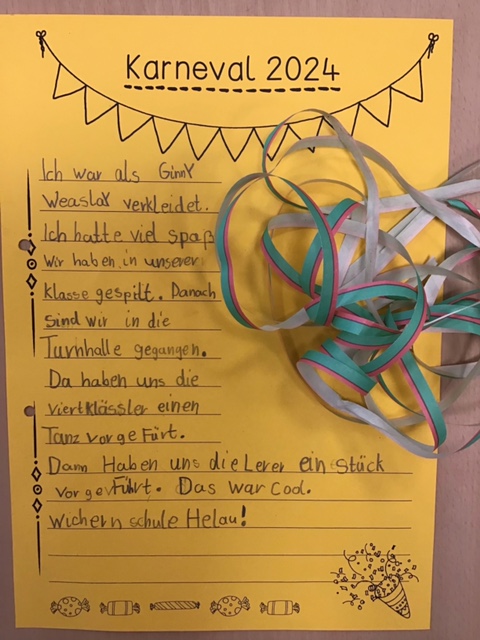 Karneval 2024
Ich war als GinnY
WeaslaY verkleidet.
Ich hatte viel Spaß
Wir haben in unserer
Klasse gespilt. Danach
Sind wir in die
Turnhalle gegangen.
Da haben uns die
viertklässler einen
Tanz vorgeFürt.
Dann Haben uns die Lerer ein Stück
vorgeFührt. Das war Cool.
Wichern schule Helau!